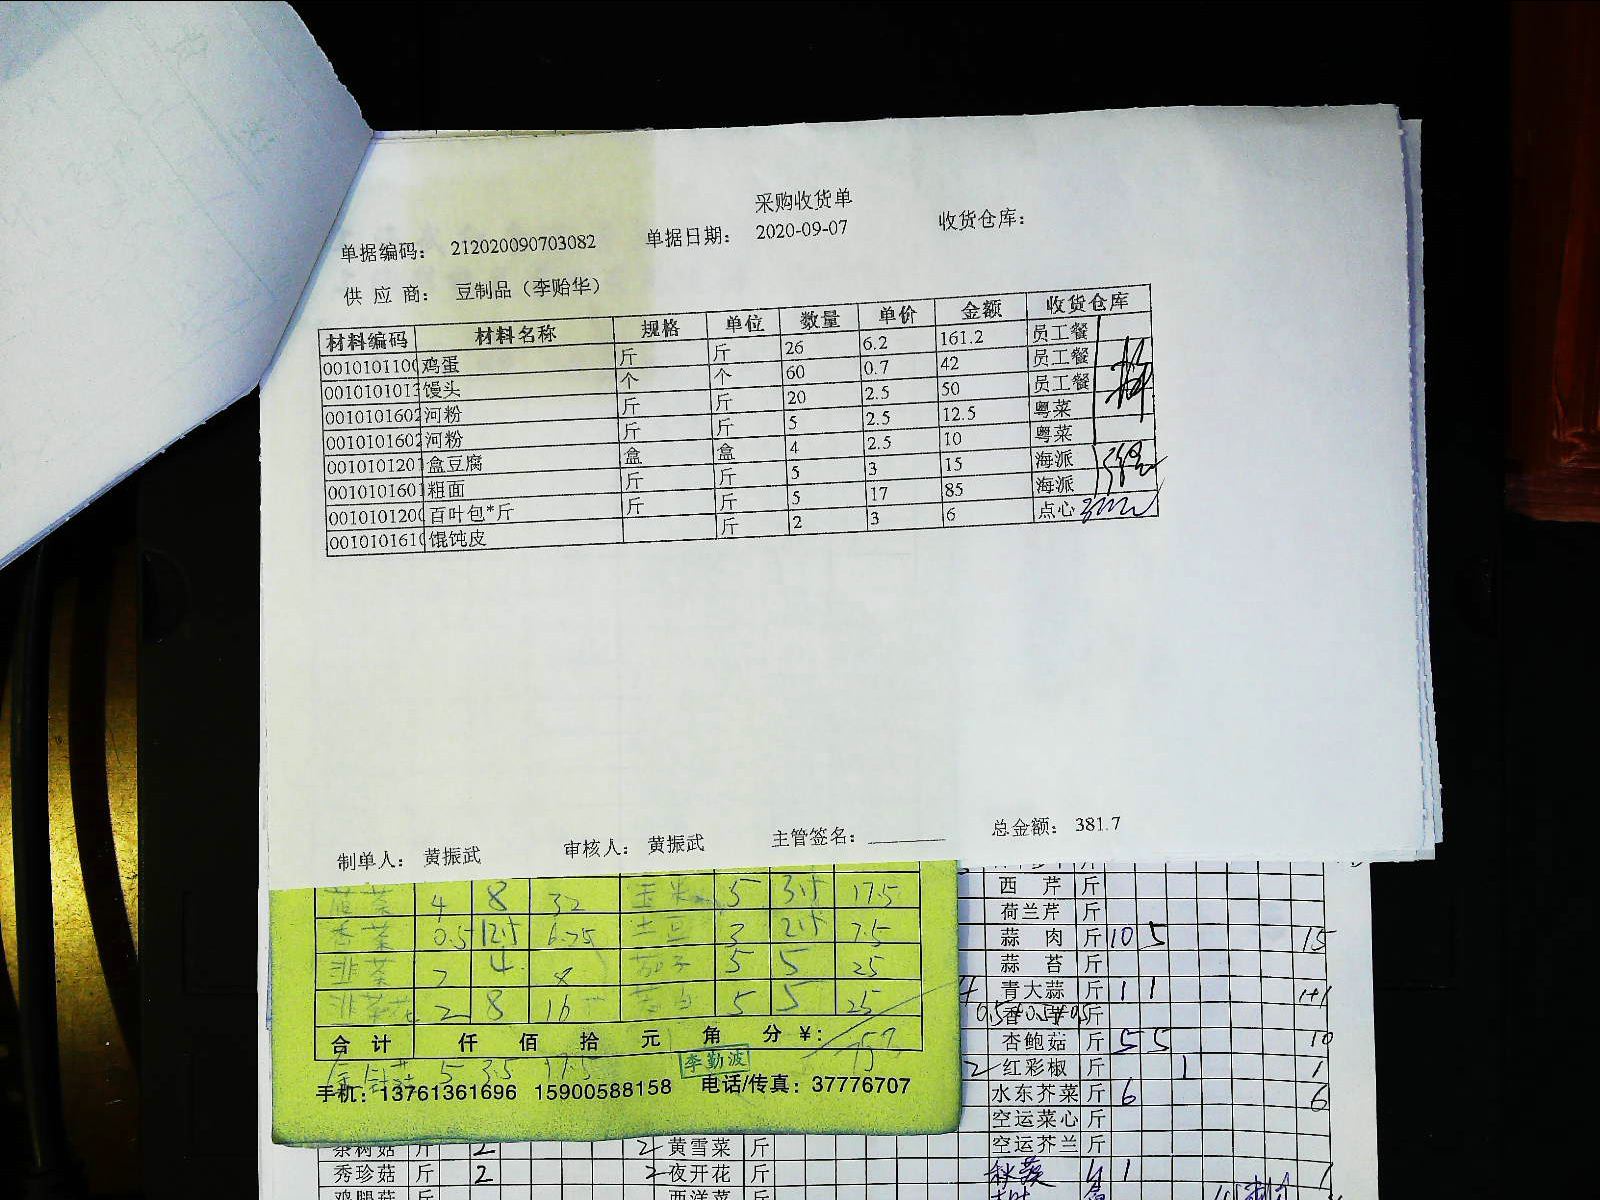 采购收货单
单据编码： 212020090703082 单据日期： 2020-09-07 收货仓库：
供 应 商： 豆制品（李贻华）
材料编码 材料名称 规格 单位 数量 单价 金额 收货仓库
001010110 鸡蛋 斤 斤 26 6.2 161.2 员工餐
001010101 馒头 个 个 60 0.7 42 员工餐
0010101602 河粉 斤 斤 20 2.5 50 员工餐
0010101602 河粉 斤 斤 5 2.5 12.5 粤菜
001010120 盒豆腐 盒 盒 4 2.5 10 粤菜
001010160 粗面 斤 斤 5 3 15 海派
001010120 百叶包*斤 斤 斤 5 17 85 海派
001010161 馄饨皮 斤 2 3 6 点心
制单人： 黄振武 审核人： 黄振武 主管签名： 总金额： 381.7
4 8 32 玉米 5 3.5 17.5
香菜 0.5 12.5 6.25 土豆 3 2.5 7.5
韭菜 2 4 8 茄子 5 5 25
韭菜花 2 8 16 5 5 25
合 计 仟 佰 拾 元 角 分 ￥:
5 3.5 17.5 李勤波
手机：13761361696 15900588158 电话/传真：37776707
西 芹 斤
荷兰芹 斤
蒜 肉 斤 10 5 15
蒜 苔 斤
青大蒜 斤 1 1 1+1
杏鲍菇 斤 5 5 10
2 红彩椒 斤 1 1
水东芥菜 斤 6 6
空运菜心 斤
空运芥兰 斤
茶树菇 斤 2 2 黄雪菜 斤
秀珍菇 斤 2 2 夜开花 斤
鸡腿菇 斤 西洋菜 斤